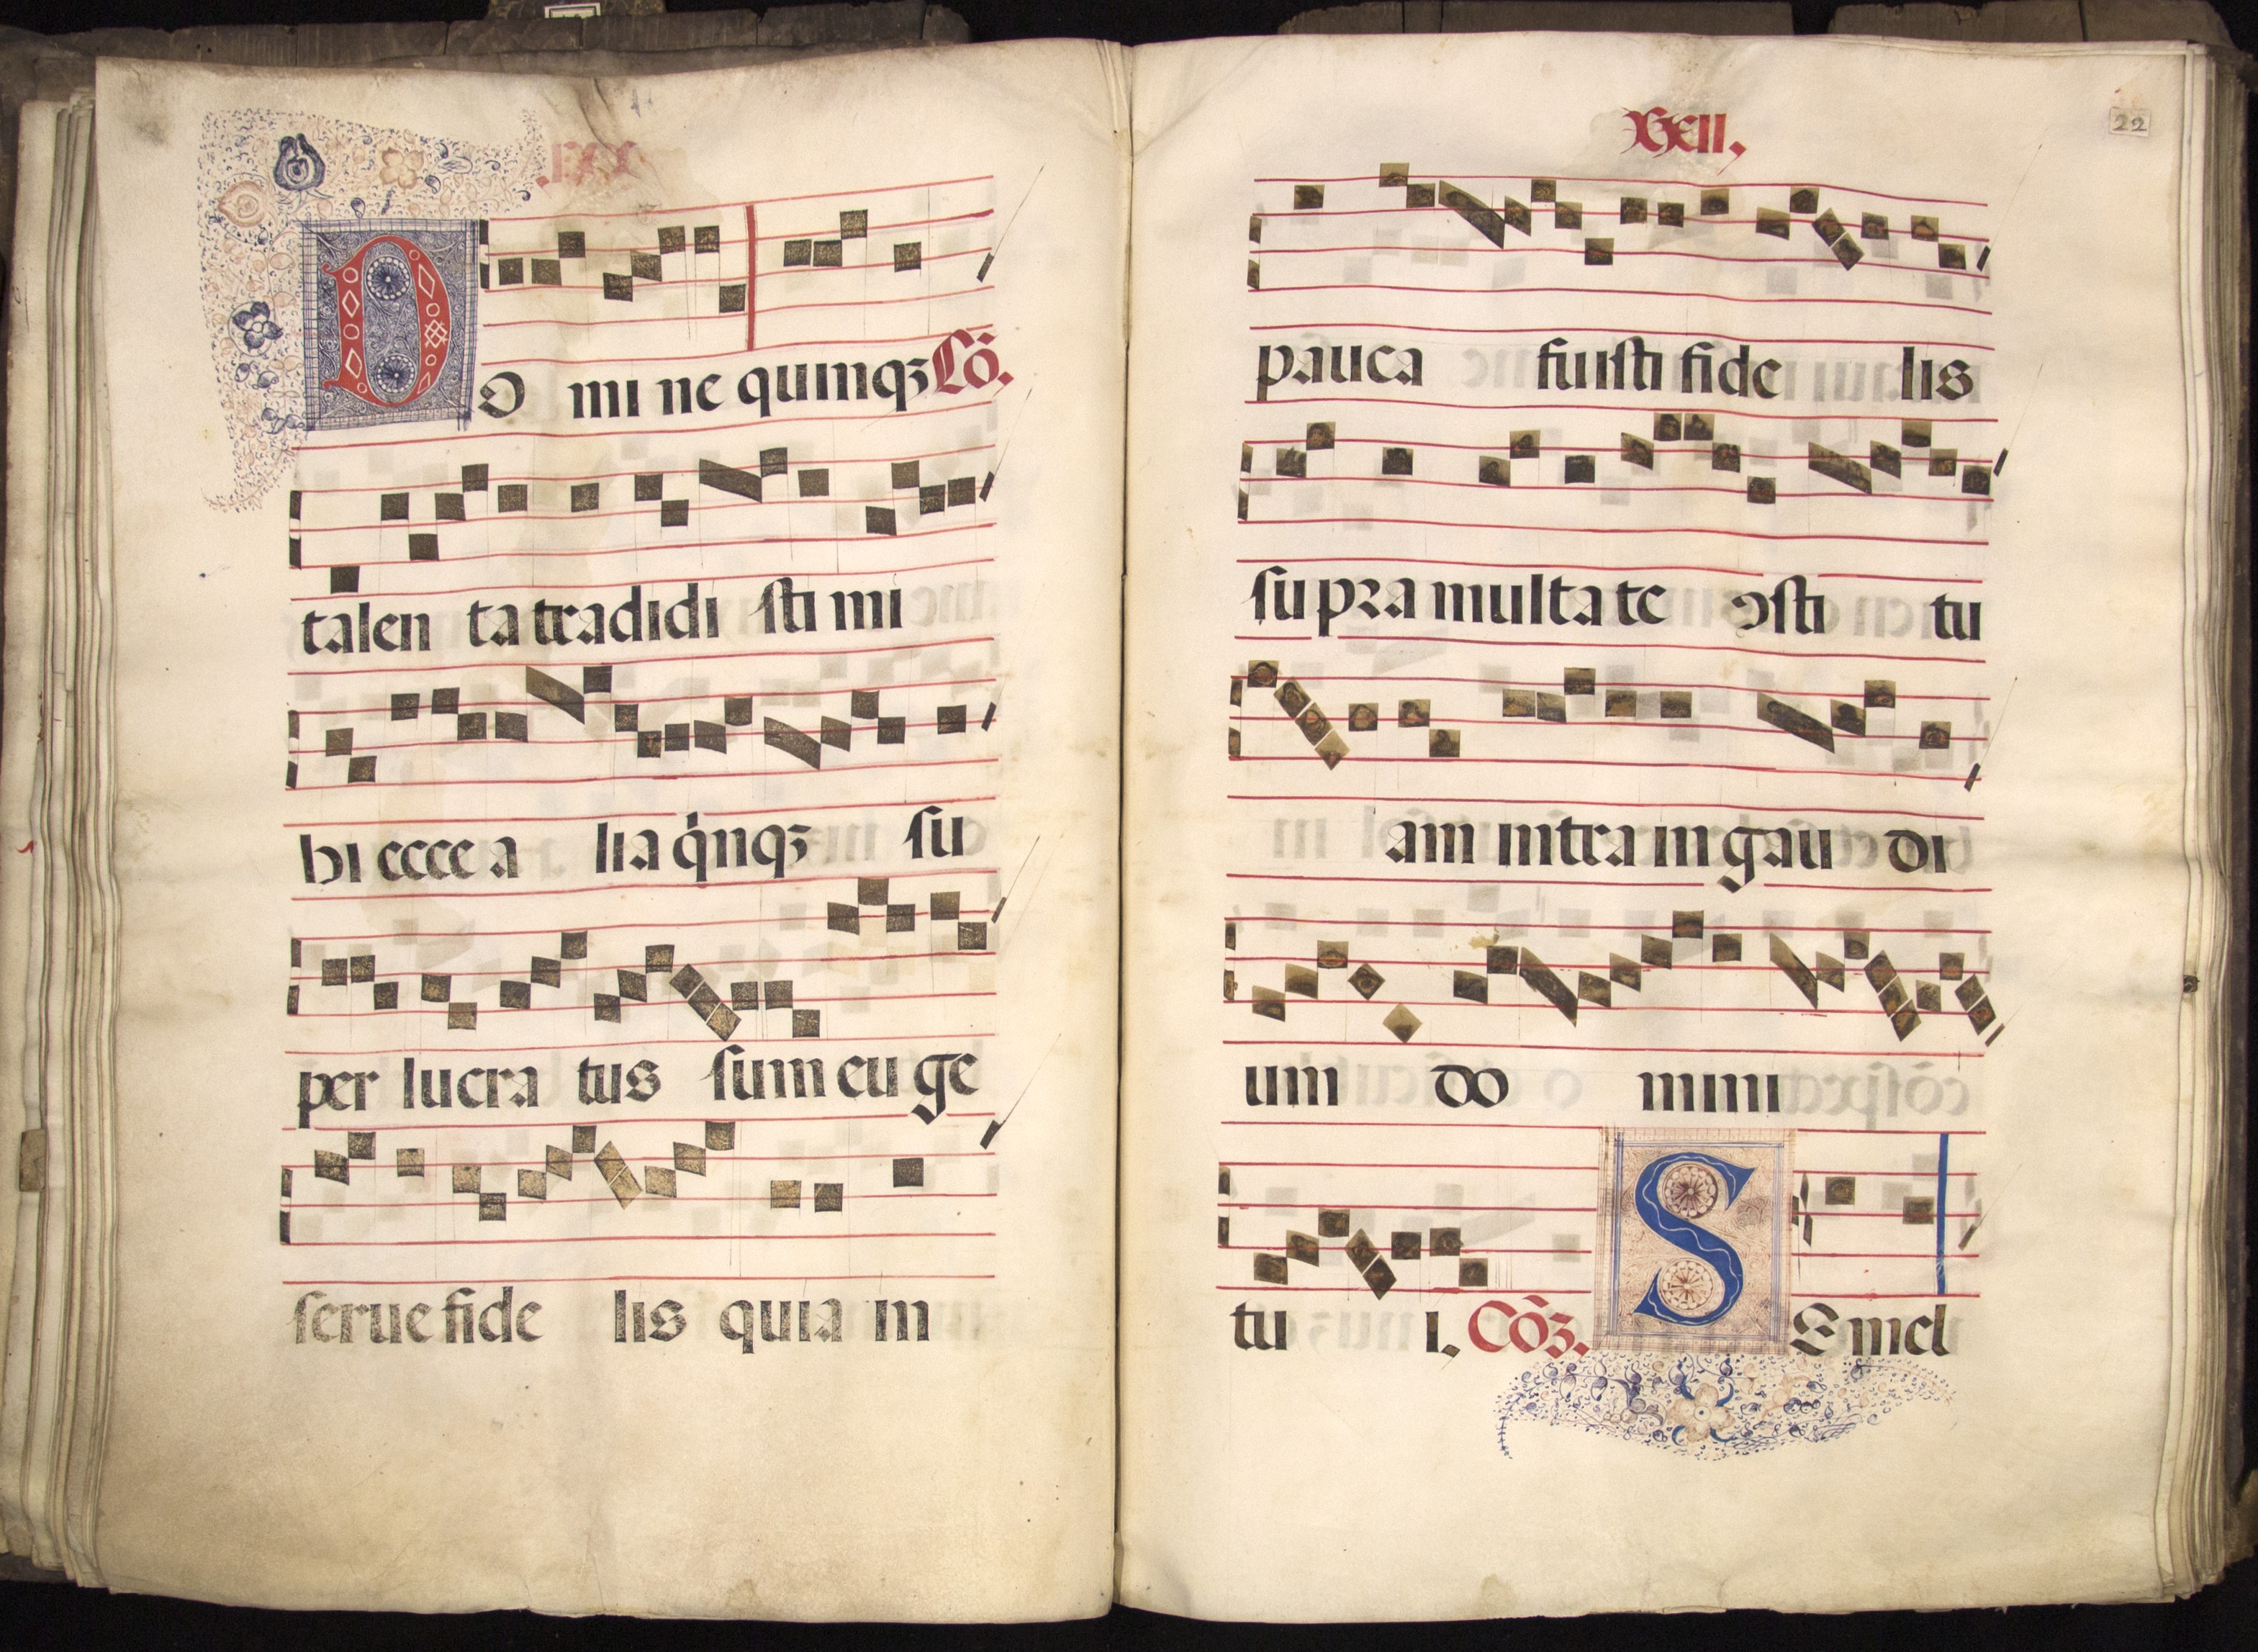 DO mi ne quinqꝫ Cõ.
talen ta tradidi sti mi
bi ecce a lia q̇nqꝫ su
per lucra tus sum eu ge
serue fide lis quia in
22
pauca fuisti fide lis
su pra multa te ꝯsti tu
am intra in gau di
um do mini
tu i. Cõꝫ. SE mel